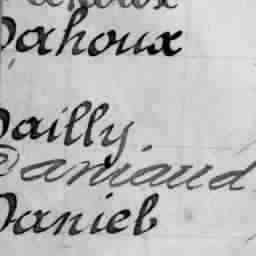 Dahoux
Dailly.
Damaud
Daniel